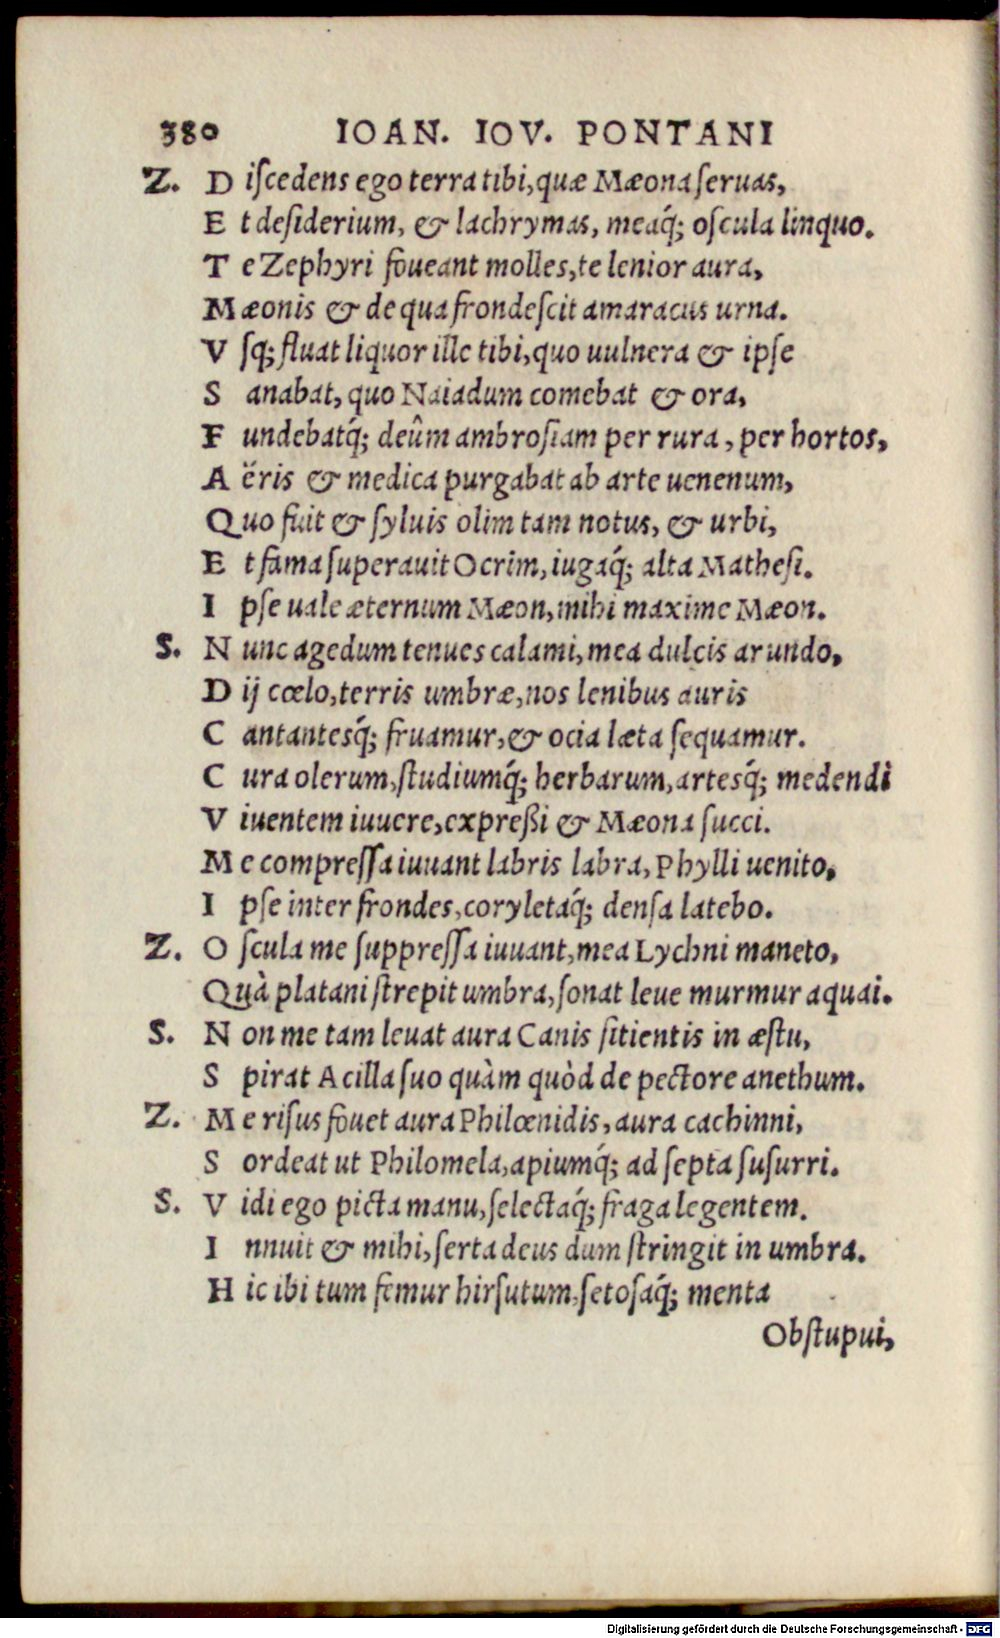 380 IOAN. IOV. PONTANI
Z. D iſcedens ego terra tibi, quæ Mæona ſeruas,
E t deſiderium, & lachrymas, meaq́; oſcula linquo.
T e Zephyri foueant molles, te lenior aura,
Mæonis & de qua frondeſcit amaracus urna.
V ſq; fluat liquor ille tibi, quo uulnera & ipſe
S anabat, quo Naiadum comebat & ora,
F undebatq́; deûm ambroſiam per rura, per hortos,
A ëris & medica purgabat ab arte uenenum,
Quo fuit & ſyluis olim tam notus, & urbi,
E t fama ſuperauit Ocrim, iugaq́; alta Matheſi.
I pſe uale æternum Mæon, mihi maxime Mæon.
S. N unc agedum tenues calami, mea dulcis arundo,
D ij cœlo, terris umbræ, nos lenibus auris
C antantesq́; fruamur, & ocia læta ſequamur.
C ura olerum, ſtudiumq́; herbarum, artesq́; medendi
V iuentem iuuere, expreßi & Mæona ſucci.
M e compreſſa iuuant labris labra, Phylli uenito,
I pſe inter frondes, coryletaq́; denſa latebo.
Z. O ſcula me ſuppreſſa iuuant, mea Lychni maneto,
Quà platani ſtrepit umbra, ſonat leue murmur aquai.
S. N on me tam leuat aura Canis ſitientis in æſtu,
S pirat Acilla ſuo quàm quòd de pectore anethum.
Z. M e riſus fouet aura Philœnidis, aura cachinni,
S ordeat ut Philomela, apiumq́; ad ſepta ſuſurri.
S. V idi ego picta manu, ſelectaq́; fraga legentem.
I nnuit & mihi, ſerta deus dum ſtringit in umbra.
H ic ibi tum femur hirſutum, ſetoſaq́; menta
Obſtupui,
Digitalisierung gefördert durch die Deutsche Forschungsgemeinschaft - DFG